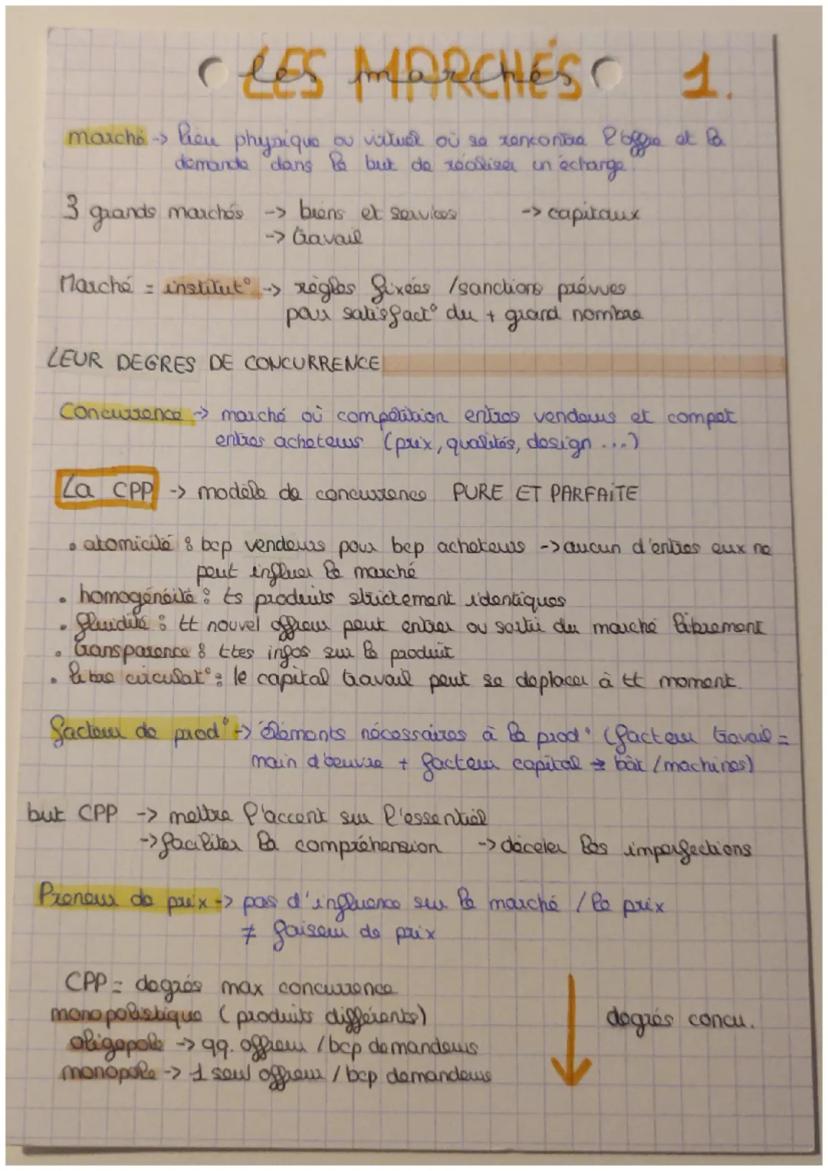 LES MARCHÉS 1.
les marchés
marché -> lieu physique ou virtuel où se rencontre l'offre et la
demande dans le but de réaliser un échange.
3 grands marchés -> biens et services -> capitaux
-> travail
Marché = institut° -> règles fixées / sanctions prévues
pour satisfact° du + grand nombre
LEUR DEGRES DE CONCURRENCE
Concurrence -> marché où compétition entres vendeurs et compet
entres acheteurs (prix, qualités, design ...)
La CPP -> modèle de concurrence PURE ET PARFAITE
• atomicité : bcp vendeurs pour bcp acheteurs -> aucun d'entres eux ne
peut influer le marché
• homogénéité : ts produits strictement identiques
• fluidité : tt nouvel offreur peut entrer ou sortir du marché librement
• transparence : ttes infos sur le produit
• libre circulat° : le capital travail peut se deplacer à tt moment.
facteur de prod° -> éléments nécessaires à la prod° (facteur travail =
main d'oeuvre + facteur capital -> bât / machines)
but CPP -> mettre l'accent sur l'essentiel
-> faciliter la compréhension -> déceler les imperfections
Preneur de prix -> pas d'influence sur le marché / le prix
≠ faiseur de prix
CPP = degrés max concurrence
monopolistique (produits différents) degrés concu.
oligopole -> qq. offreur / bcp demandeurs
monopole -> 1 seul offreur / bcp demandeurs